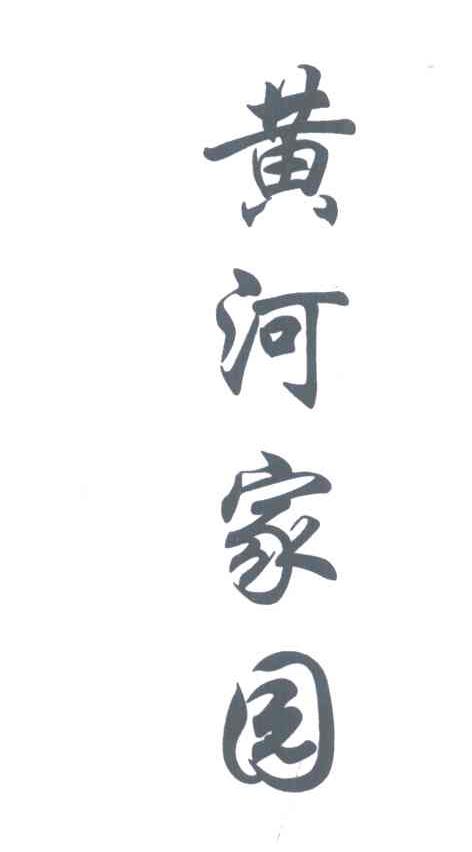 黄河家园